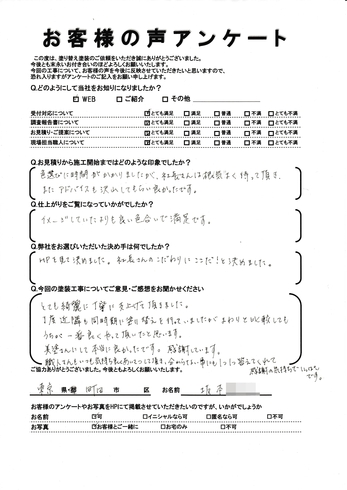 お客様の声アンケート
この度は、塗り替え塗装のご依頼をいただき誠にありがとうございました。
今後とも末永いお付き合いのほどよろしくお願いいたします。
今回の工事について、お客様の声を今後に反映させていただきたいと思いますので、
恐れ入りますがアンケートのご記入をお願い申し上げます。
Q.どのようにして当社をお知りになりましたか?
☑ WEB □ ご紹介 □ その他
受付対応について ☑とても満足 □ 満足 □ 普通 □ 不満 □ とても不満
調査報告書について ☑とても満足 □ 満足 □ 普通 □ 不満 □ とても不満
お見積り・ご提案について ☑とても満足 □ 満足 □ 普通 □ 不満 □ とても不満
現場担当職人について ☑とても満足 □ 満足 □ 普通 □ 不満 □ とても不満
Q.お見積りから施工開始まではどのような印象でしたか?
色選びに時間がかかりましたが、社長さんは根気よく待って頂き、
また アドバイスも沢山してもらい良かったです。
Q.仕上がりをご覧になっていかがでしたか?
イメージしていたよりも良い色合いで満足です。
Q.弊社をお選びいただいた決め手は何でしたか?
HPを見て決めました。社長さんのこだわりに ここだ!と決めました。
Q.今回の塗装工事についてご意見・ご感想をお聞かせください
とても綺麗に丁寧に仕上げて頂きました。
丁度近隣も同時期に塗り替えを行っていましたが まわりと比較しても
うちが一番良くやって頂いたと思います。
さんにして本当に良かったです。感謝しています。
職人さんもいつも気持ち良くあいさつして頂き、
感謝の気持ちでいっぱいです。
ご協力ありがとうございました。今後ともよろしくお願いいたします。
東京 県・都 町田 市 区 お名前
お客様のアンケートやお写真をHPにて掲載させていただきたいのですが、いかがでしょうか
お名前 ☑可 □イニシャルなら可 □匿名なら可 □不可
お写真 ☑お客様とご一緒に □お宅のみ □不可